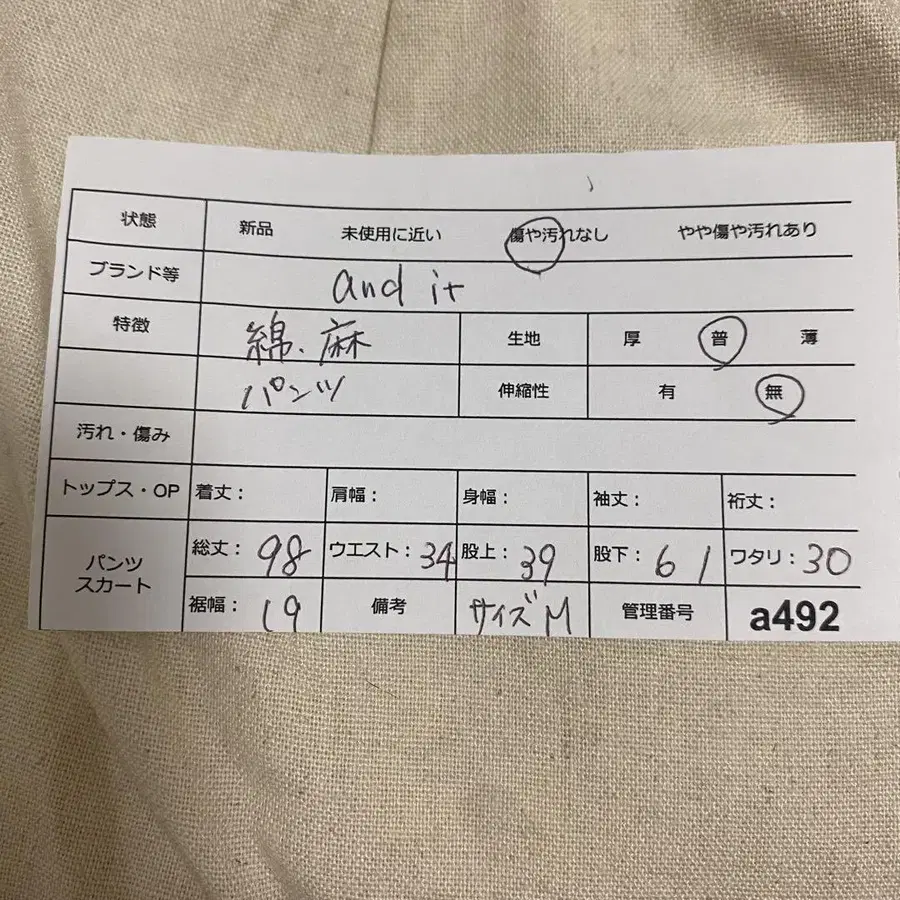 状態 新品 未使用に近い 傷や汚れなし やや傷や汚れあり
ブランド等 and it
特徴 綿、麻 生地 厚 普 薄
パンツ 伸縮性 有 無
汚れ・傷み
トップス・OP 着丈： 肩幅： 身幅： 袖丈： 裄丈：
パンツ
スカート
総丈：98 ウエスト：34 股上：39 股下：61 ワタリ：30
裾幅：19 備考 サイズM 管理番号 a492